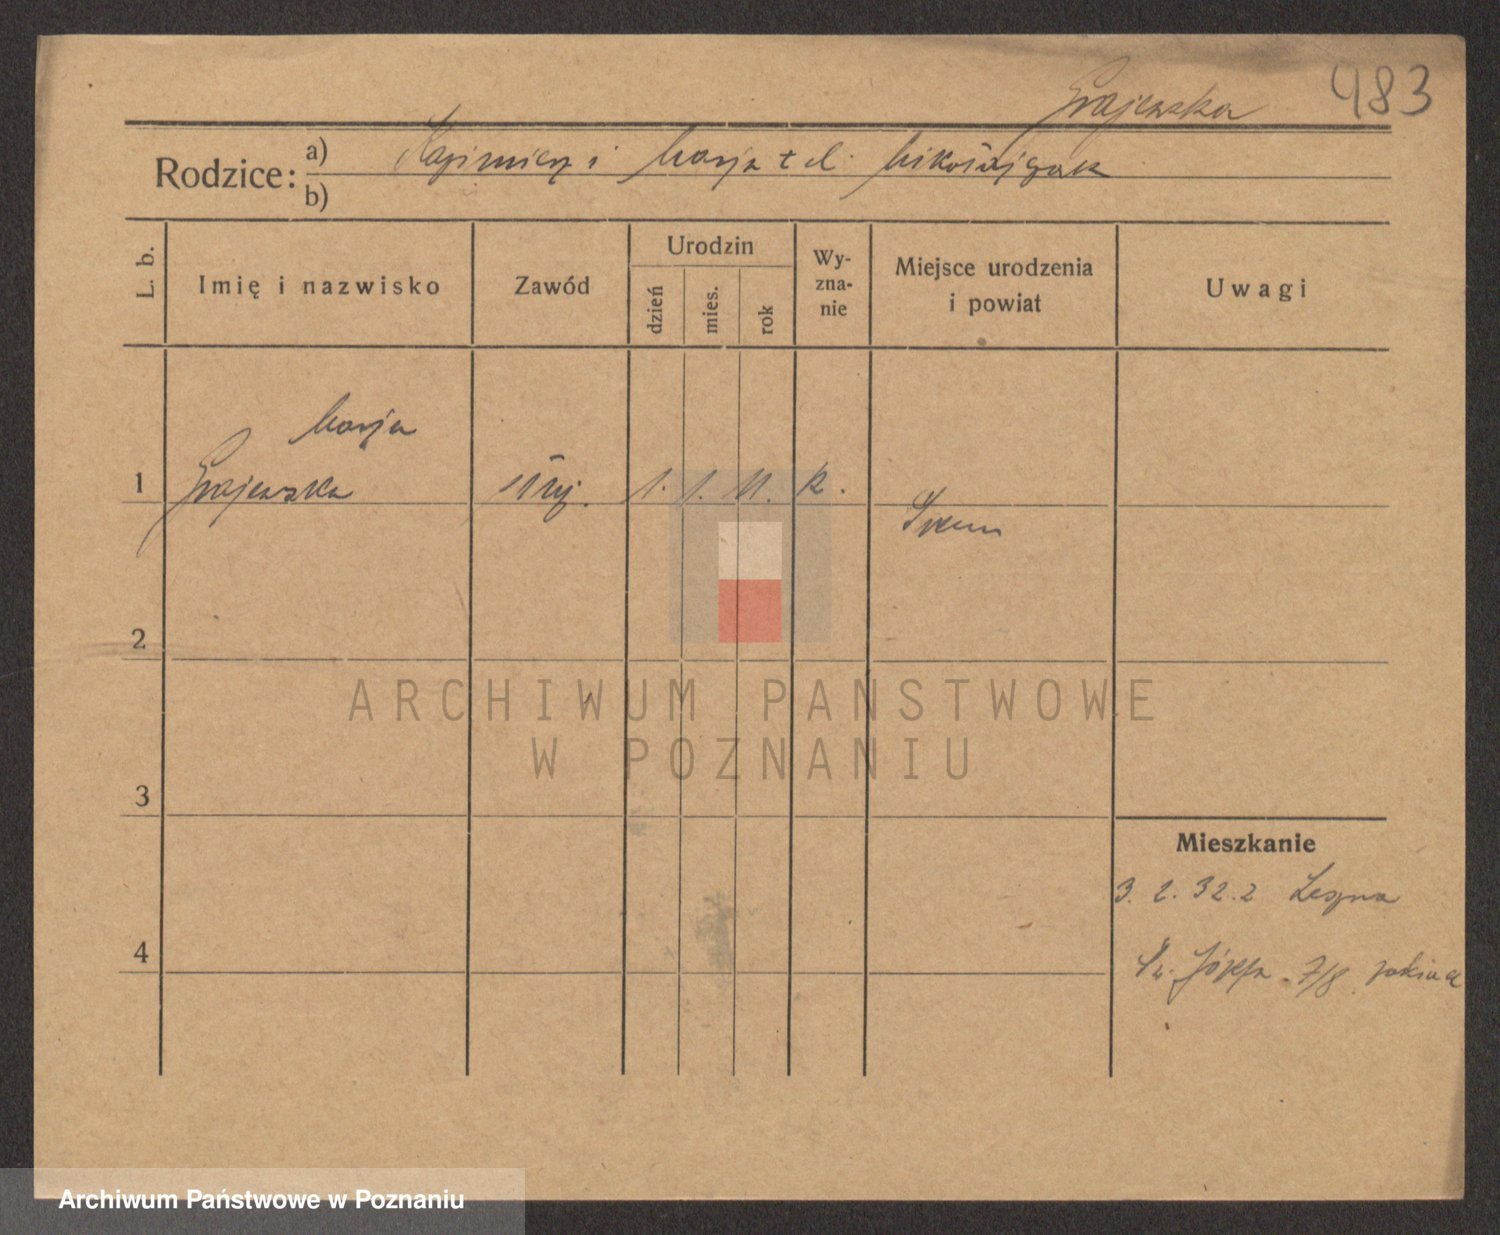 Grajewska 983
Rodzice: a) Kazimierz i Marja z d. Mikołajczak
b)
L. b. Imię i nazwisko Zawód Urodzin dzień mies. rok Wy-zna-nie Miejsce urodzenia i powiat Uwagi
Marja
1 Grajewska służ. 1. 1. 11. k.
Śrem
2
ARCHIWUM PAŃSTWOWE
W POZNANIU
3
Mieszkanie
3. 2. 32. z Leszna
4 Św. Józefa 7/8
Archiwum Państwowe w Poznaniu